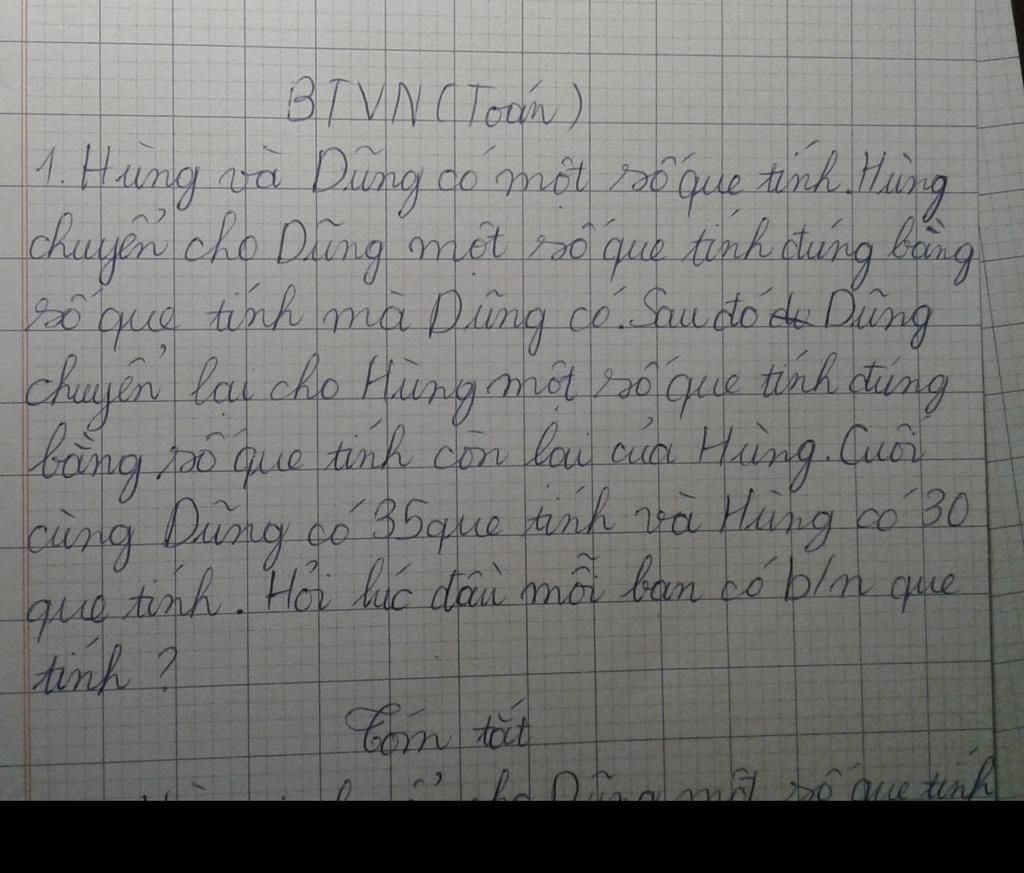 BTVN (Toán)
1. Hùng và Dũng có một số que tính. Hùng
chuyển cho Dũng một số que tính đúng bằng
số que tính mà Dũng có. Sau đó Dũng
chuyển lại cho Hùng một số que tính đúng
bằng số que tính còn lại của Hùng. Cuối
cùng Dũng có 35 que tính và Hùng có 30
que tính. Hỏi lúc đầu mỗi bạn có b/n que
tính ?
Tóm tắt
Dũng một số que tính